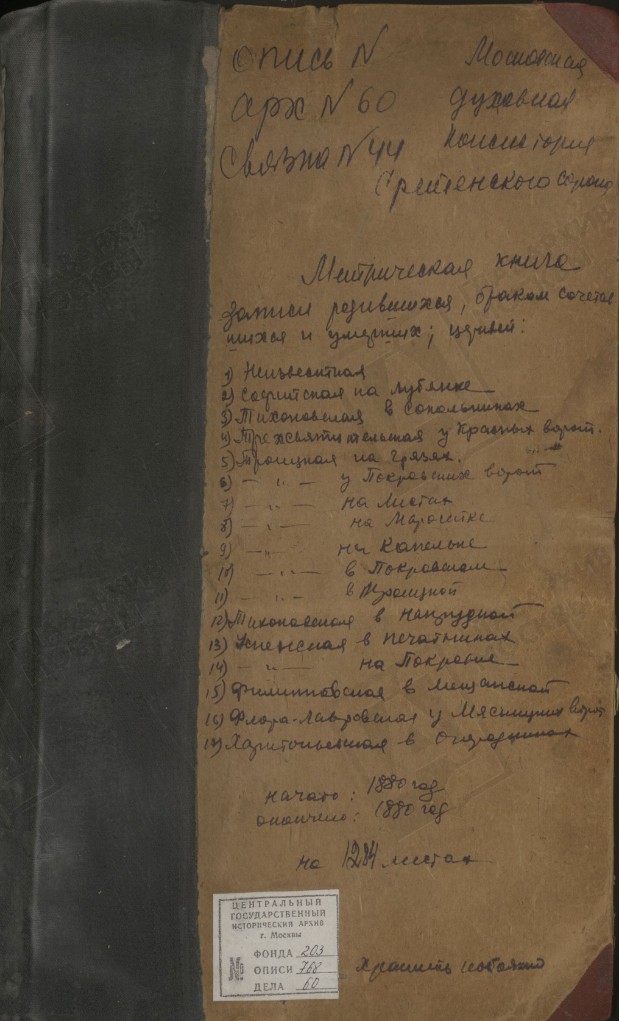 опись N Московская
арх N 60 духовная
Связка N 44 консистория
Сретенского сорока
Метрическая книга
записи родившихся, браком сочетав
шихся и умерших; церквей:
1) Неизвестная
2) Софийская на Лубянке
3) Тихоновская в Сокольниках
4) Трехсвятительская у Красных ворот.
5) Троицкая на Грязях.
6) — " — у Покровских ворот
7) — " — на Листах
8) — " — на Маросейке
9) — " — на Капельке
10) — " — в Покровском
11) — " — в Троицкой
12) Тихоновская в Напрудной
13) Успенская в Печатниках
14) — " — на Покровке
15) Филипповская в Мещанской
16) Флора-Лавровская у Мясницких ворот
17) Харитоньевская в Огородниках
начато: 1880 год
окончено: 1880 год
на 1284 листах
ЦЕНТРАЛЬНЫЙ
ГОСУДАРСТВЕННЫЙ
ИСТОРИЧЕСКИЙ АРХИВ
г. Москвы
ФОНДА 203
№ ОПИСИ 768
ДЕЛА 60
Хранить постоянно